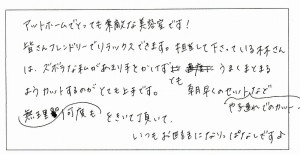 アットホームでとっても素敵な美容室です!
皆さんフレンドリーでリラックスできます。担当して下さっている林さん
は、ズボラな私があまり手をかけず とも うまくまとまる
ようカットするのがとても上手です。 朝早くのセットなど
無理 何度も をきいて頂いて、 や子連れでのカット…
いつもお世話になりっぱなしですよ